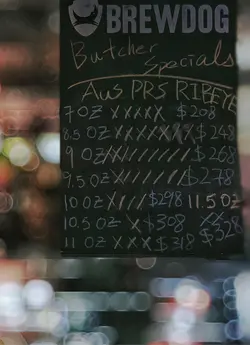 BREWDOG
Butcher Specials
AUS PRS RIBEYE
7 OZ XXXXX $208
8.5 OZ XXXXXXX $248
9 OZ ////////// $268
9.5 OZ ///////// $278
10 OZ //// $298 11.5 OZ
10.5 OZ X $308 XX $328
11 OZ XXX $318